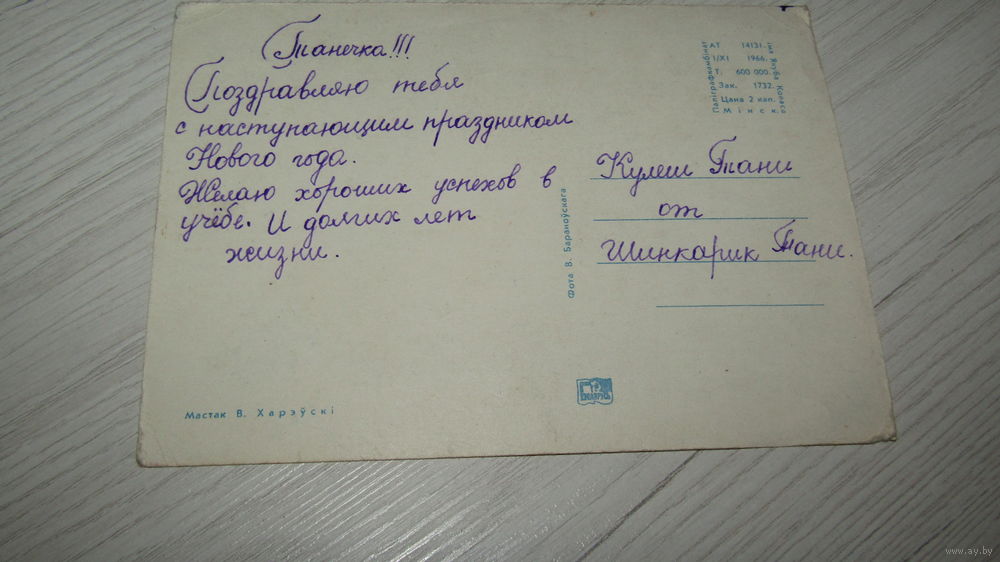 Танечка!!!
Поздравляю тебя
с наступающим праздником
Нового года.
Желаю хороших успехов в
учёбе. И долгих лет
жизни.
Мастак В. Харэўскі
Фота В. Бараноўскага
АТ 14131.
1/XI 1966.
Т. 600 000.
Зак. 1732.
Цана 2 кап.
Мінск.
Паліграфкамбінат
імя Якуба Коласа
Кулеш Тани
от
Шинкарик Тани.
БЕЛАРУСЬ
www.ay.by